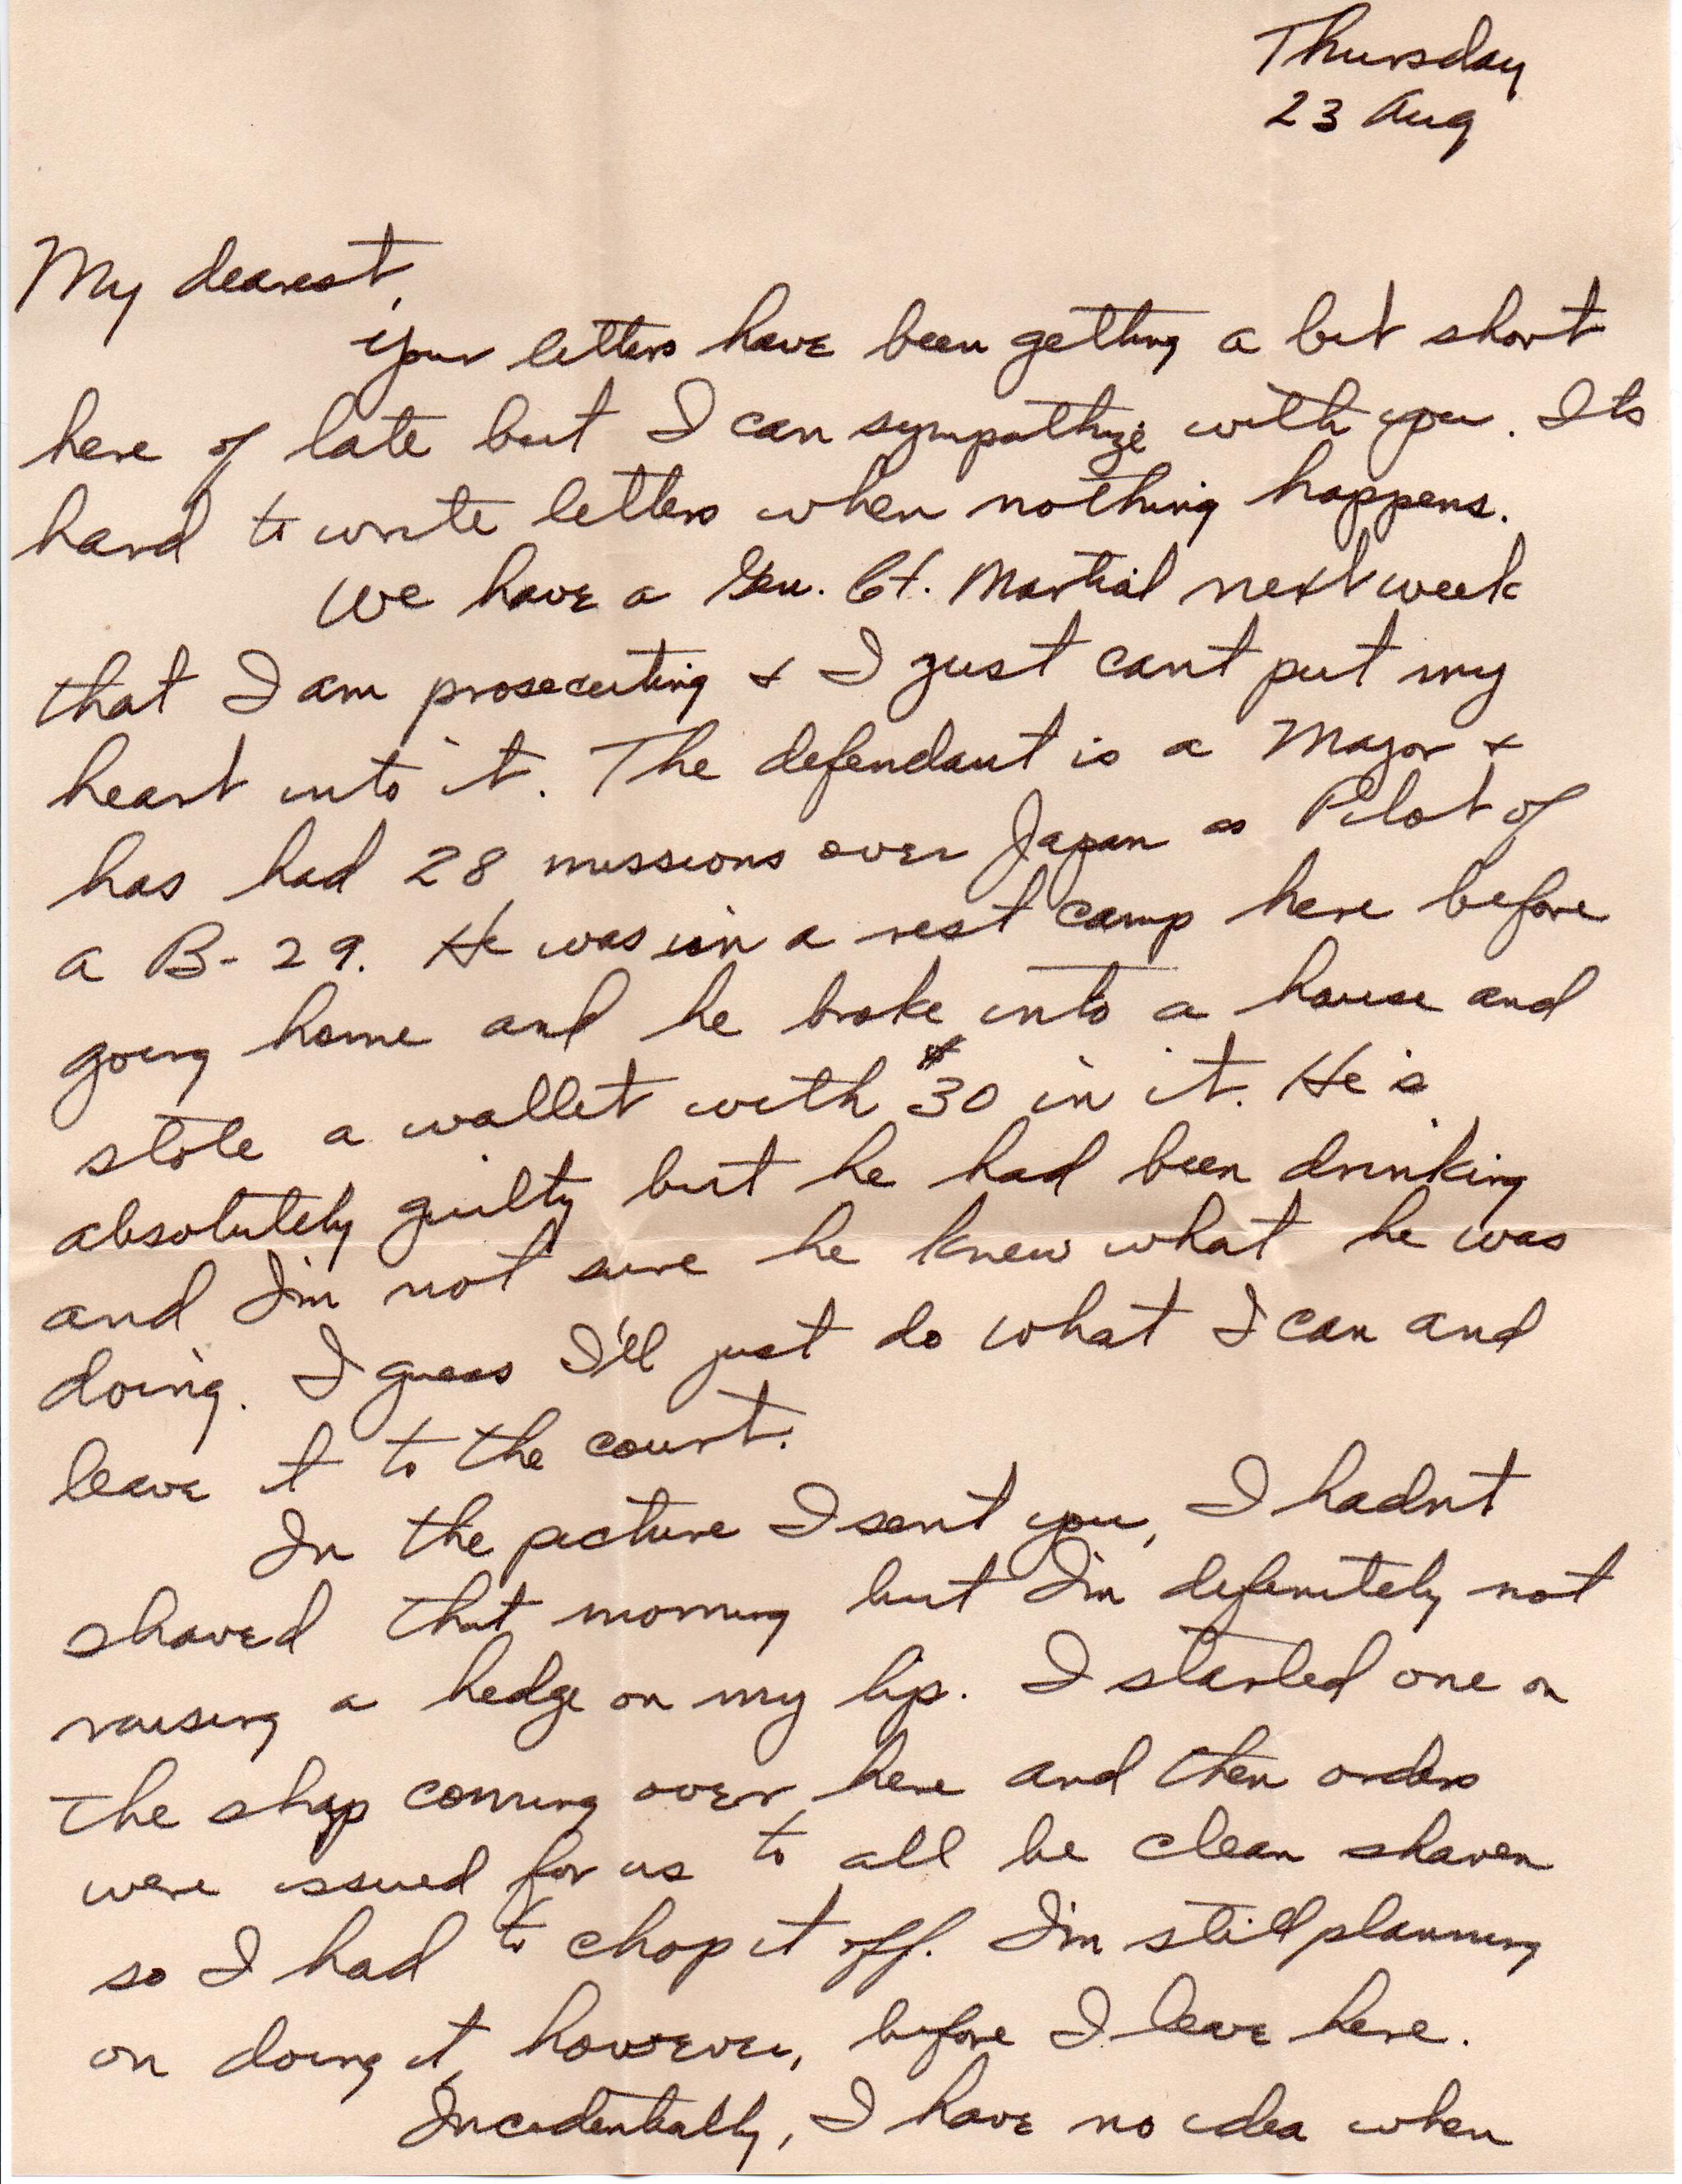 Thursday
23 Aug
My dearest,
your letters have been getting a bit short
here of late but I can sympathize with you. Its
hard to write letters when nothing happens.
We have a Gen. Ct. Martial next week
that I am prosecuting & I just cant put my
heart into it. The defendant is a Major &
has had 28 missions over Japan as Pilot of
a B-29. He was in a rest camp here before
going home and he broke into a house and
stole a wallet with $30 in it. He is
absolutely guilty but he had been drinking
and I'm not sure he knew what he was
doing. I guess I'll just do what I can and
leave it to the court.
In the picture I sent you, I hadn't
shaved that morning but I'm definitely not
raising a hedge on my lip. I started one on
the ship coming over here and then orders
were issued for us to all be clean shaven
so I had to chop it off. I'm still planning
on doing it, however, before I leave here.
Incidentally, I have no idea when